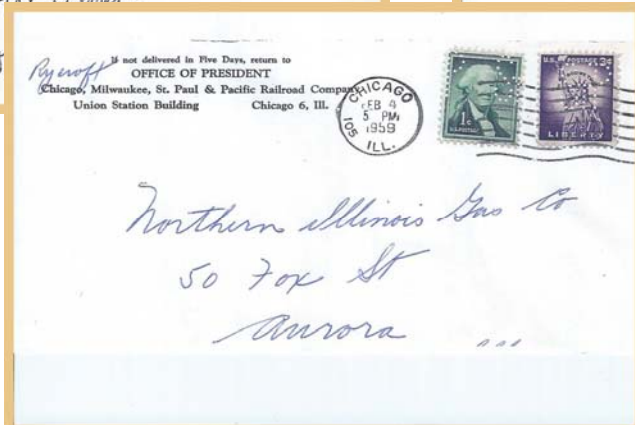 If not delivered in Five Days, return to
Rycroft
OFFICE OF PRESIDENT
Chicago, Milwaukee, St. Paul & Pacific Railroad Company
Union Station Building Chicago 6, Ill.
CHICAGO
FEB 4
5 PM
1959
ILL.
105
1¢
U.S. POSTAGE
U.S. POSTAGE 3¢
LIBERTY
Northern Illinois Gas Co
50 Fox St
Aurora